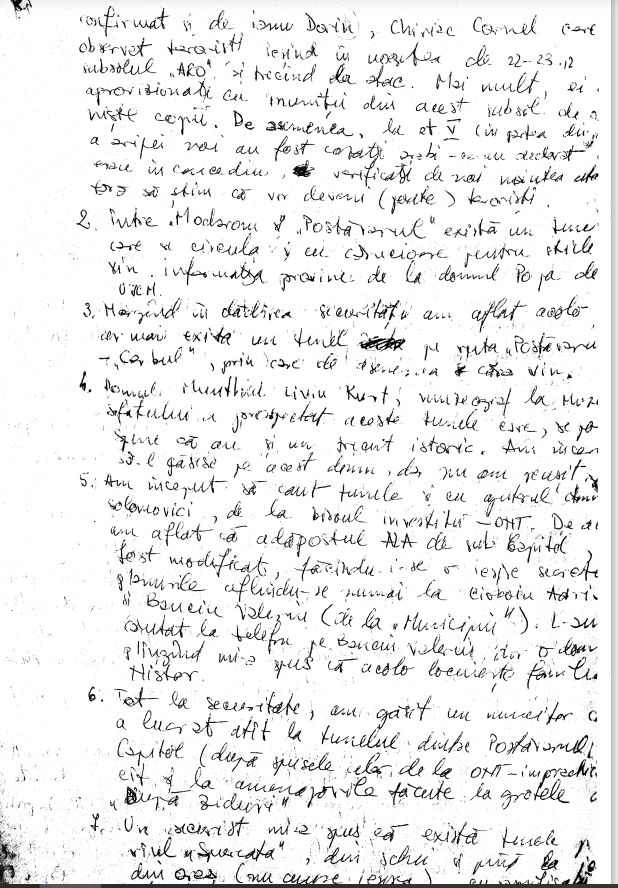 confirmat și de ianu Dorin), Chiriac Cornel care
observat teroriști ieșind în noaptea de 22-23.12
subsolul "ARO" și trecînd la atac. Mai mult, ei
aprovizionați cu muniții din acest subsol de
niște copii. De asemenea, la et V (în partea
a aripei noi au fost cazați arabi - ne-au declarat
erau în concediu, verificați de noi noaptea
să știm că vor deveni (poate) teroriști.
2. Între "Modarom" și "Postăvarul" există un tune
care se circula și cu cărucioare pentru sticle
vin. informația provine de la domnul Popa de
UJCM.
3. Mergînd în clădirea securității am aflat acolo
mai exista un tunel pe ruta "Postăvaru
- "Cerbul", prin care de asemenea căra vin.
4. Domnul Liviu Kurt, muzeograf la Muze
sfatului a prospectat aceste tunele care, se po
spune că au și un istoric. Am încer
să-l găsesc pe acest domn, dar nu am reușit.
5. Am început să caut tunele și cu ajutorul
solomovici, de la biroul investiții - ONT. De
am aflat că adăpostul ALA de sub Capitol
fost modificat, făcîndu-i-se o ieșire secretă
planurile aflîndu-se numai la Cioboiu Adri
și Banciu Valeriu (de la "Municipiu"). L-am
căutat la telefon pe Banciu Valeriu, dar o doam
plîngînd mi-a spus că acolo locuiește familia
Nistor.
6. Tot la securitate, am găsit un muncitor c
a lucrat atît la tunelul dintre Postăvarul
Capitol (după spusele celor de la ONT - impractic
cît și la amenajările făcute la grotele
"După ziduri"
7. Un securist mi-a spus că există tunele
rîul "Spurcata", din Schei și pînă la
din oraș (nu cunosc ieșirea)